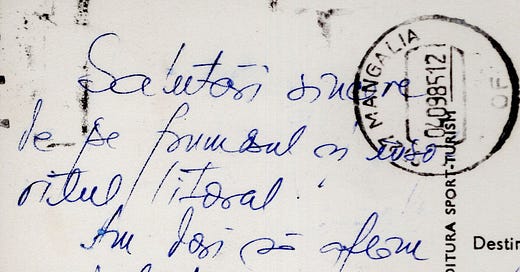 Salutări sincere
de pe frumosul și înso
ritul litoral!
Am dori să aflăm
MANGALIA
040985 12
OF
EDITURA SPORT-TURISM
Destin